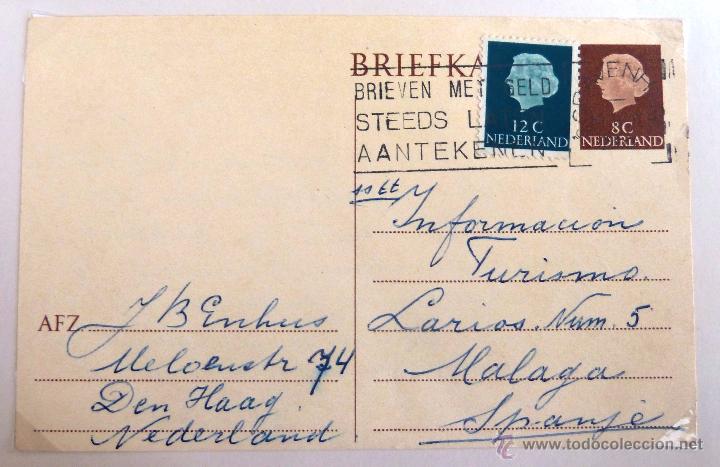 BRIEFKA
BRIEVEN MET GELD
STEEDS LATEN
AANTEKENEN
12 C
NEDERLAND
8 C
NEDERLAND
Informacion
Turismo
Larios. Num. 5
Malaga
Spanje
AFZ
J B Enhus
74
Den Haag.
Nederland
todocoleccion.net